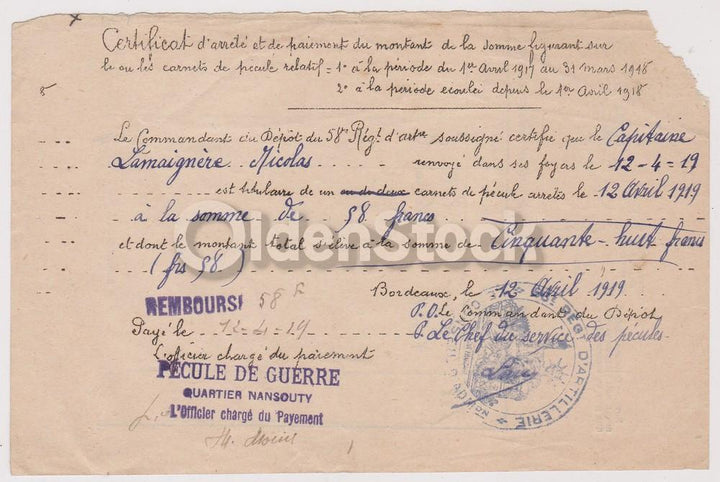 Certificat d'arrêté et de paiement du montant de la somme figurant sur
le ou les carnets de pécule relatif = 1° à la période du 1er Avril 1917 au 31 mars 1918
2° à la période écoulée depuis le 1er Avril 1918
Le Commandant du Dépôt du 58e Régt d'artie soussigné certifie que le Capitaine
Lamaignère Nicolas renvoyé dans ses foyers le 12-4-19
est titulaire de un ou de deux carnets de pécule arrêtés le 12 Avril 1919
à la somme de 58 francs
et dont le montant total s'élève à la somme de Cinquante-huit francs
(frs 58)
OldenStock
Bordeaux, le 12 Avril 1919
REMBOURSÉ 58 F
P.O. Le Commandant du Dépôt
Payé le 12-4-19
P. Le Chef du service des pécules
L'officier chargé du paiement
PÉCULE DE GUERRE
QUARTIER NANSOUTY
L'Officier chargé du Payement
RÉGT D'ARTILLERIE